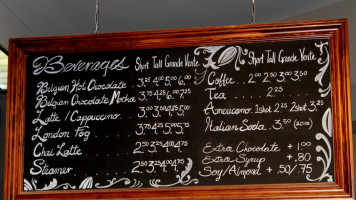 Beverages Short Tall Grande Vente
Belgian Hot Chocolate 3.25 4.00 5.00 6.00
Belgian Chocolate Mocha 3.75 4.25
Latte / Cappuccino 3.00 3.50 4.25 5.00
London Fog 3.75 4.50 5.25
Chai Latte 2.50 3.25 4.00 4.75
Steamer 2.50 3.25 4.00 4.75
Short Tall Grande Vente
Coffee 2.00 2.50 3.00 3.50
Tea 2.25
Americano 1 shot 2.75 2 shot 3.25
Italian Soda 3.50
Extra Chocolate + 1.00
Extra Syrup + .80
Soy/Almond + .50/.75